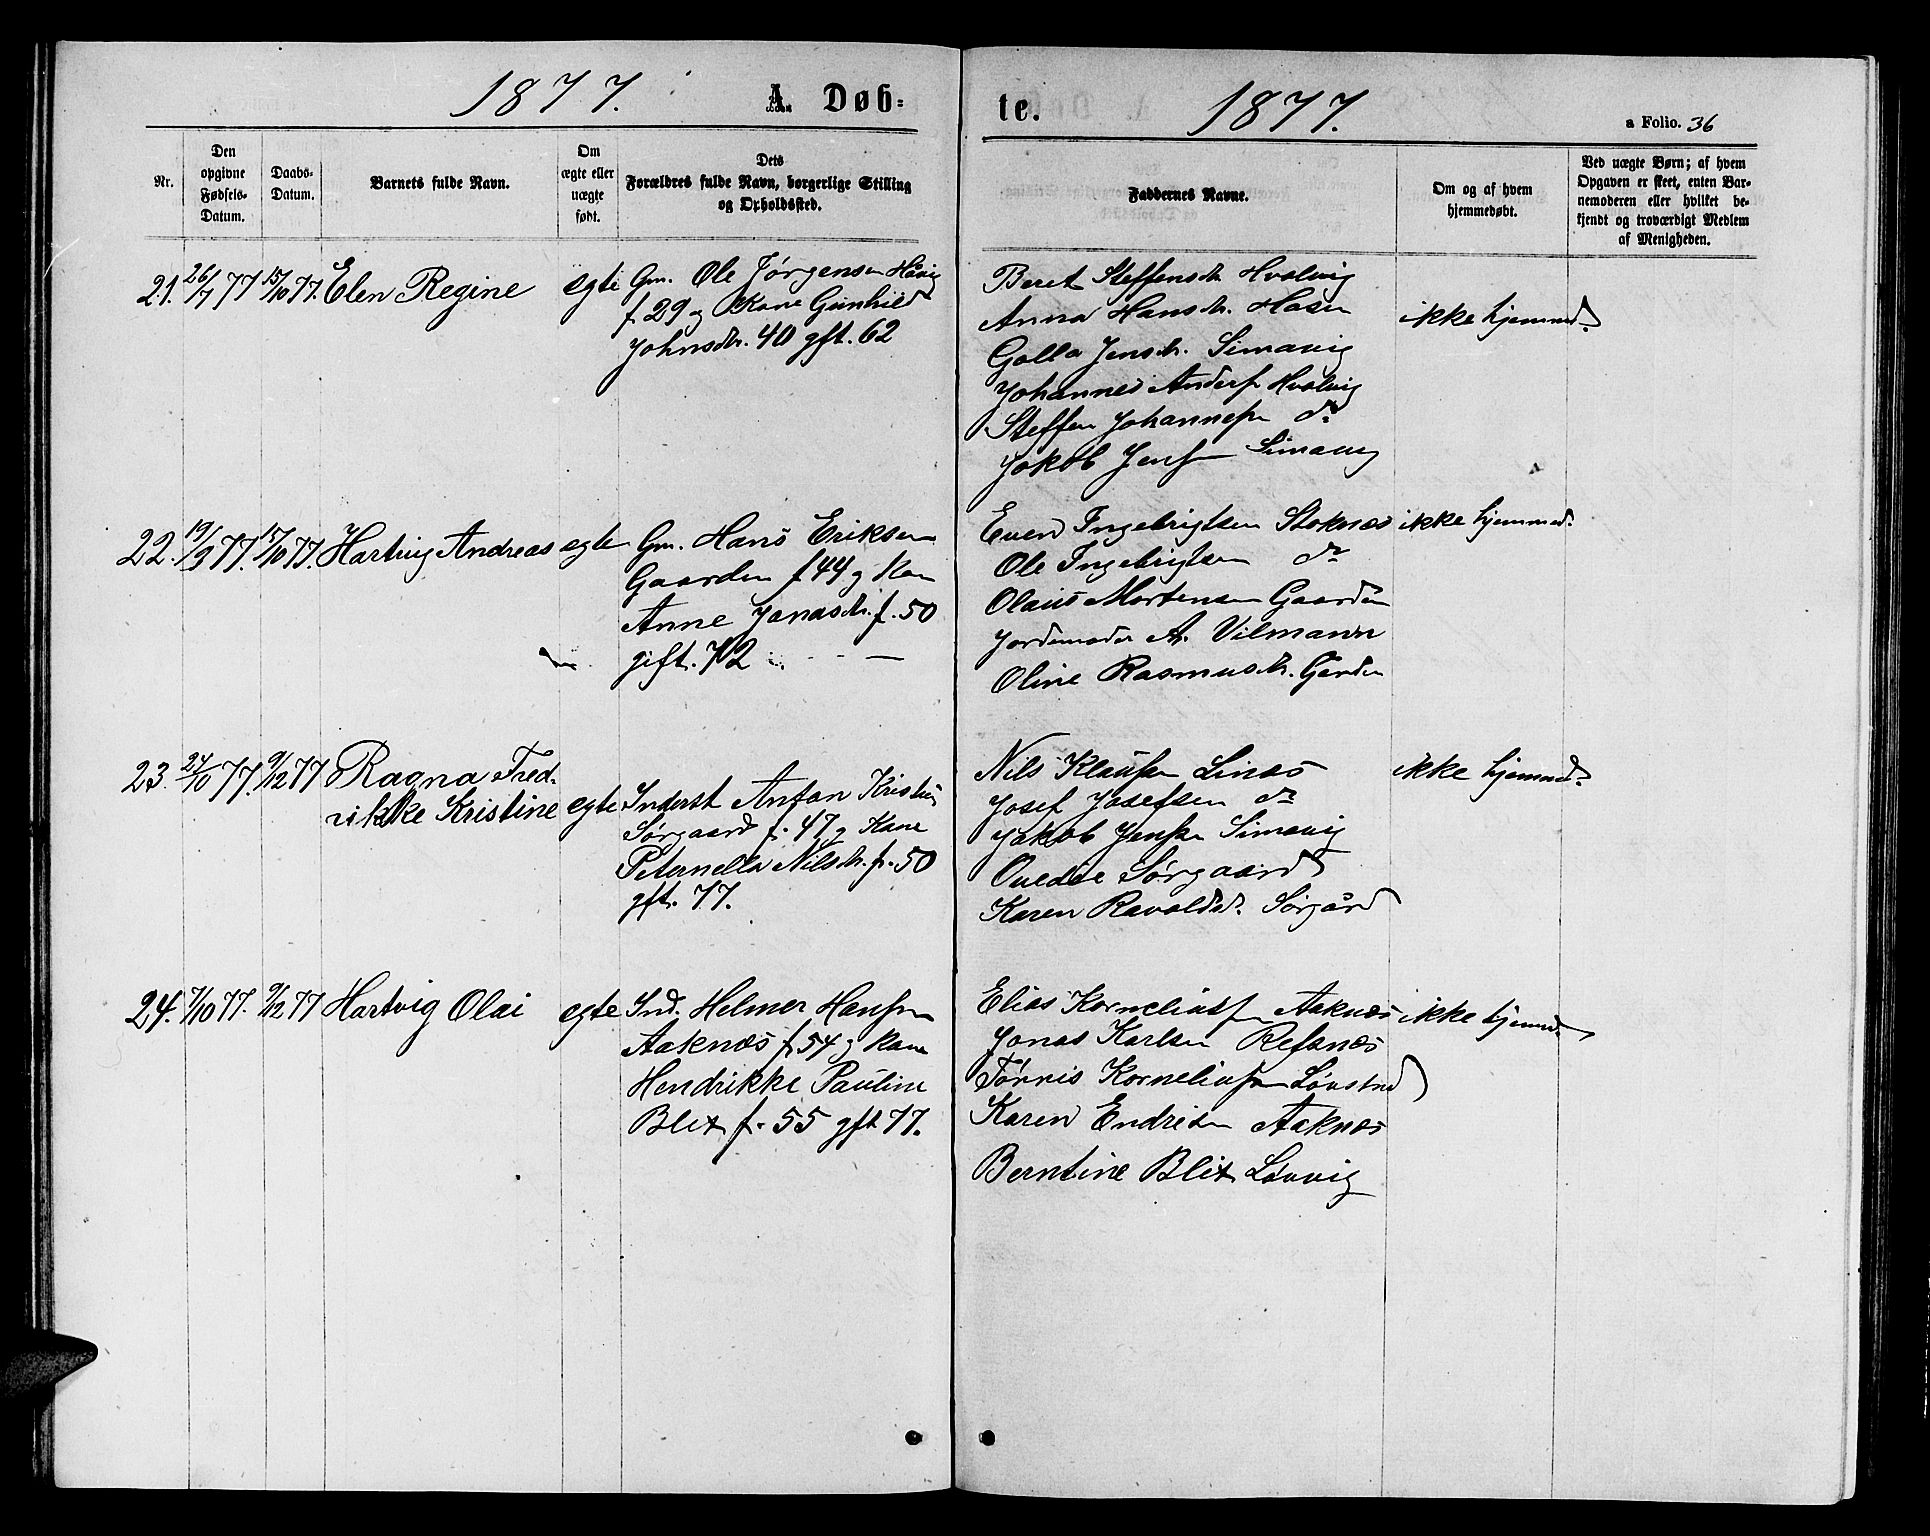 1877. A. Døb=
te. 1877. a Folio. 36
Nr.
Den opgivne Fødsels-Datum.
Daabs-Datum.
Barnets fulde Navn.
Om ægte eller uægte født.
Dets Forældres fulde Navn, borgerlige Stilling og Opholdssted.
Faddernes Navne.
Om og af hvem hjemmedøbt.
Ved uægte Børn; af hvem Opgaven er skeet, enten Barnemoderen eller hvilket bekjendt og troværdigt Medlem af Menigheden.
21. 26/7 77 15/10 77. Elen Regine egte Gm. Ole Jørgensen Håvig
f 29 og Kone Gunhild
Johnsdtr. 40 gft. 62
Beret Steffensdtr Hvalvig
Anna Hansdtr. Hasen
Golla Jensdtr. Simavig
Johannes Anders Hvalvig
Steffen Johannesen do
Jakob Jensen Simavig
ikke hjemmed.
22. 19/9 77. 15/10 77. Hartvig Andreas egte Gm. Hans Eriksen
Gaarden f 44 og Kone
Anne Jonasdtr. f. 50
gift. 72
Even Ingebrigtsen Stoknes ikke hjemmed.
Ole Ingebrigtsen do
Olaus Mortensen Gaarden
Jordemoder A. Vilmann
Oline Rasmusdtr. Garden
23. 24/10 77. 9/12 77 Ragna Fred-
rikke Kristine egte Inderst Anton Kristin
Sørgaard f. 47 og Kone
Peternella Nilsdtr. f. 50
gft. 77.
Nils Klausen Sinæs ikke hjemmed.
Josef Josefsen do
Jakob Jensen Simavig
Ovedie Sørgaard
Karen Ravaldsd. Sørgård
24. 7/10 77. 9/12 77 Hartvig Olai egte Ind. Helmer Hansen
Aaknæs f 54 og Kone
Hendrikke Pauline
Blix f. 55 gft 77.
Elias Korneliussen Aaknæs ikke hjemmd.
Jonas Karlsen Refsnæs
Tørris Korneliussen Løvstad
Karen Endresen Aaknæs
Berntine Blix Løvvig